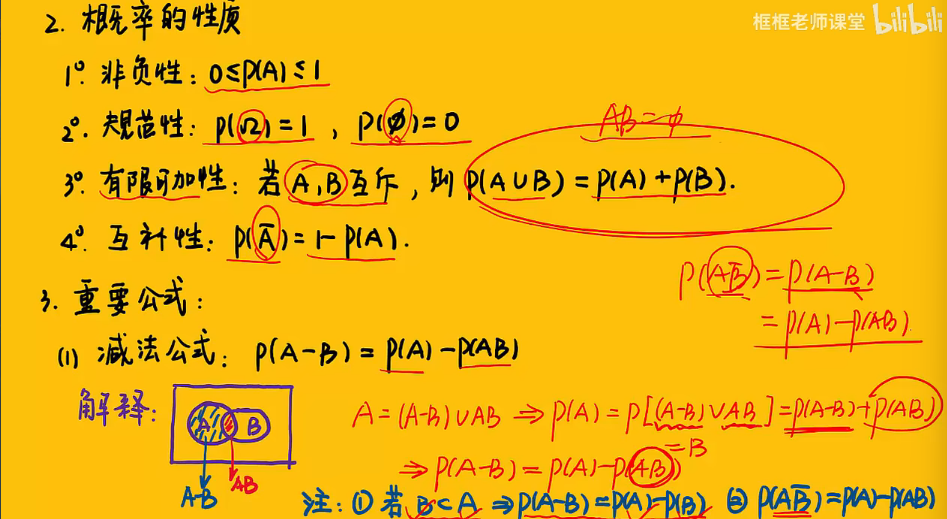 框框老师课堂 bilibili
2. 概率的性质
1°. 非负性: 0≤P(A)≤1
2°. 规范性: P(Ω)=1 , P(∅)=0
AB=∅
3°. 有限可加性: 若A,B互斥, 则P(A∪B)=P(A)+P(B).
4°. 互补性: P(A̅)=1-P(A).
P(AB̅)=P(A-B)
=P(A)-P(AB)
3. 重要公式:
(1) 减法公式: P(A-B)=P(A)-P(AB)
解释:
A B
A-B AB
A=(A-B)∪AB ⇒ P(A)=P[(A-B)∪AB]=P(A-B)+P(AB)
⇒ P(A-B)=P(A)-P(AB)
=B
注: ① 若 B⊂A ⇒P(A-B)=P(A)-P(B) ② P(AB̅)=P(A)-P(AB)